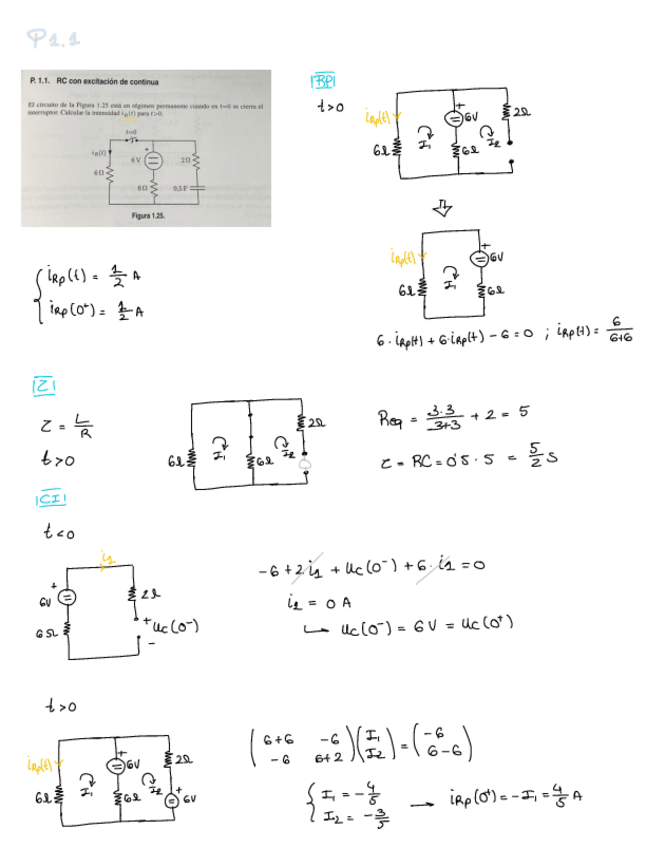 P1.1
P. 1.1. RC con excitación de continua
El circuito de la Figura 1.25 está en régimen permanente cuando en t=0 se cierra el
interruptor. Calcular la intensidad i_R(t) para t>0.
t=0
i_R(t)
6V
2Ω
6Ω
6Ω
0,5F
Figura 1.25.
|RP|
t>0
i_Rp(t)
6V
2Ω
6Ω
I₁
6Ω
I₂
i_Rp(t)
6V
6Ω
I₁
6Ω
6·i_Rp(t) + 6·i_Rp(t) - 6 = 0 ; i_Rp(t) = 6/(6+6)
{ i_Rp(t) = 1/2 A
i_Rp(0⁺) = 1/2 A
|Z|
Z = L/R
t>0
2Ω
6Ω
I₁
6Ω
I₂
Req = 3·3/(3+3) + 2 = 5
Z = RC = 0'5·5 = 5/2 s
|CI|
t<0
i₁
6V
2Ω
6Ω
+ uc(0⁻)
-
-6 + 2·i₁ + uc(0⁻) + 6·i₁ = 0
i₁ = 0 A
↳ uc(0⁻) = 6V = uc(0⁺)
t>0
i_Rp(t)
6V
2Ω
6Ω
I₁
6Ω
I₂
6V
(6+6 -6) (I₁) = (-6)
(-6 6+2) (I₂) (6-6)
{ I₁ = -4/5
I₂ = -3/5
→ i_Rp(0⁺) = -I₁ = 4/5 A